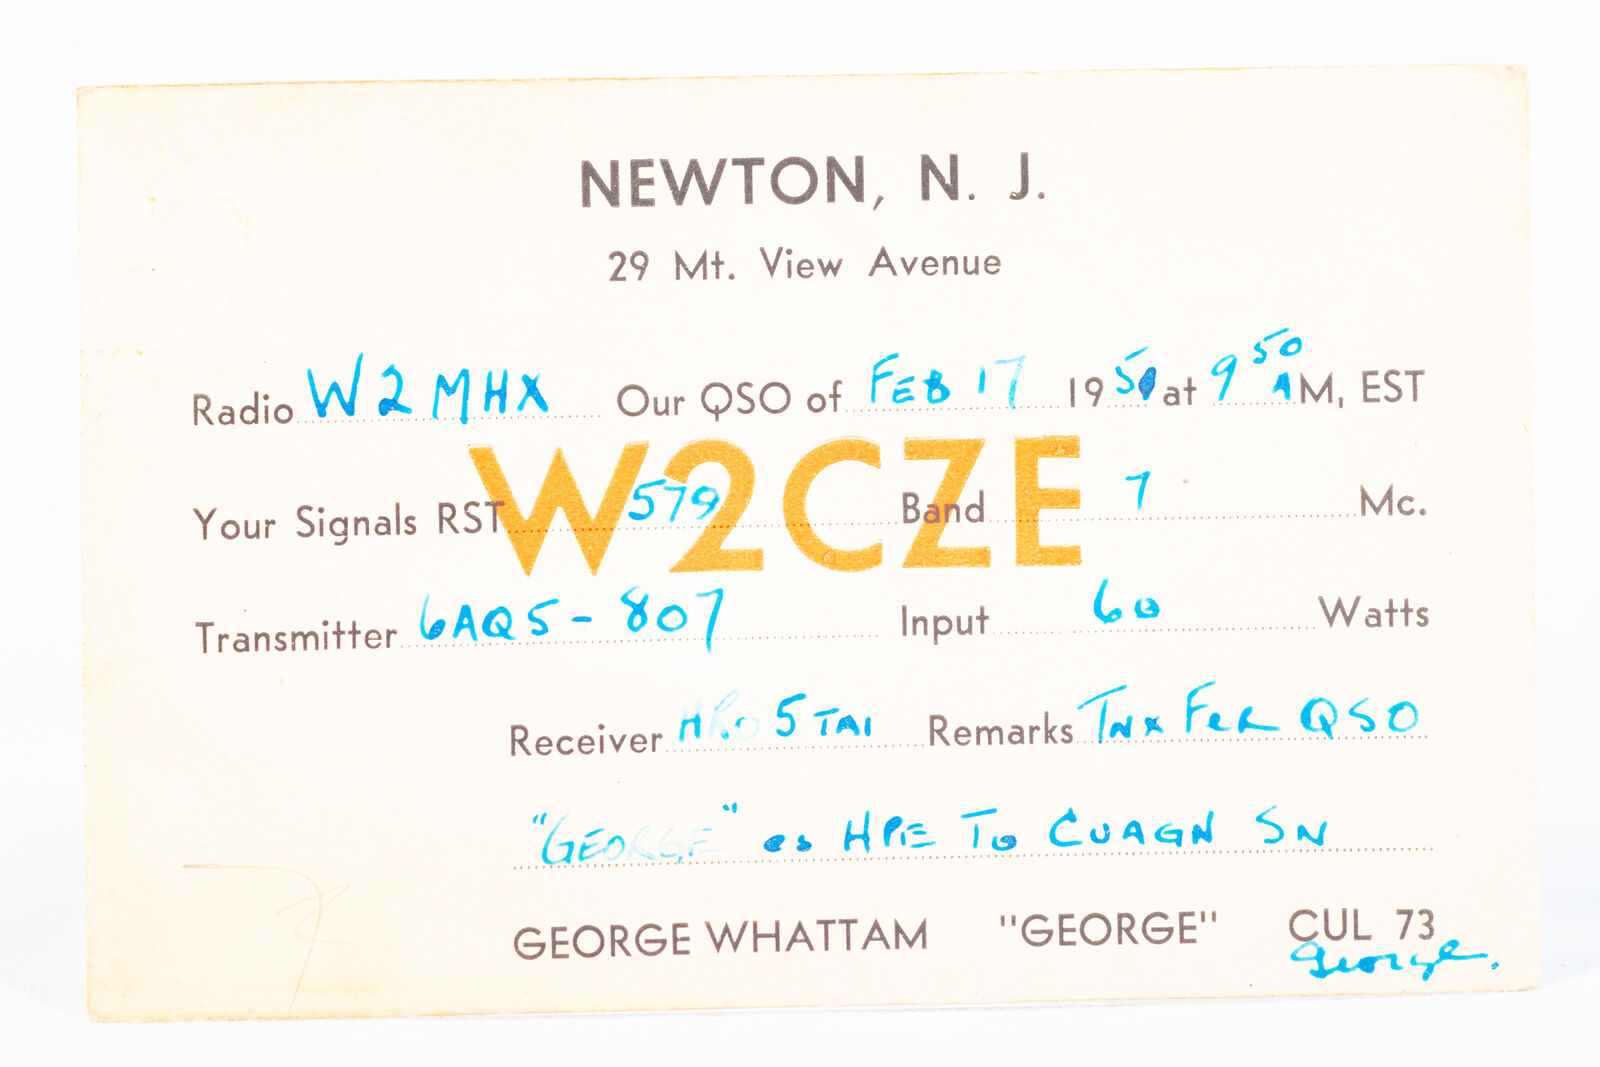 NEWTON, N. J.
29 Mt. View Avenue
Radio W2MHX Our QSO of FEB 17 1950 at 9 50 AM, EST
W2CZE
Your Signals RST 579 Band 7 Mc.
Transmitter 6AQ5 - 807 Input 60 Watts
Receiver HRO 5TA1 Remarks TNX FER QSO
"GEORGE" es HPE TO CUAGN SN
GEORGE WHATTAM "GEORGE" CUL 73
George.